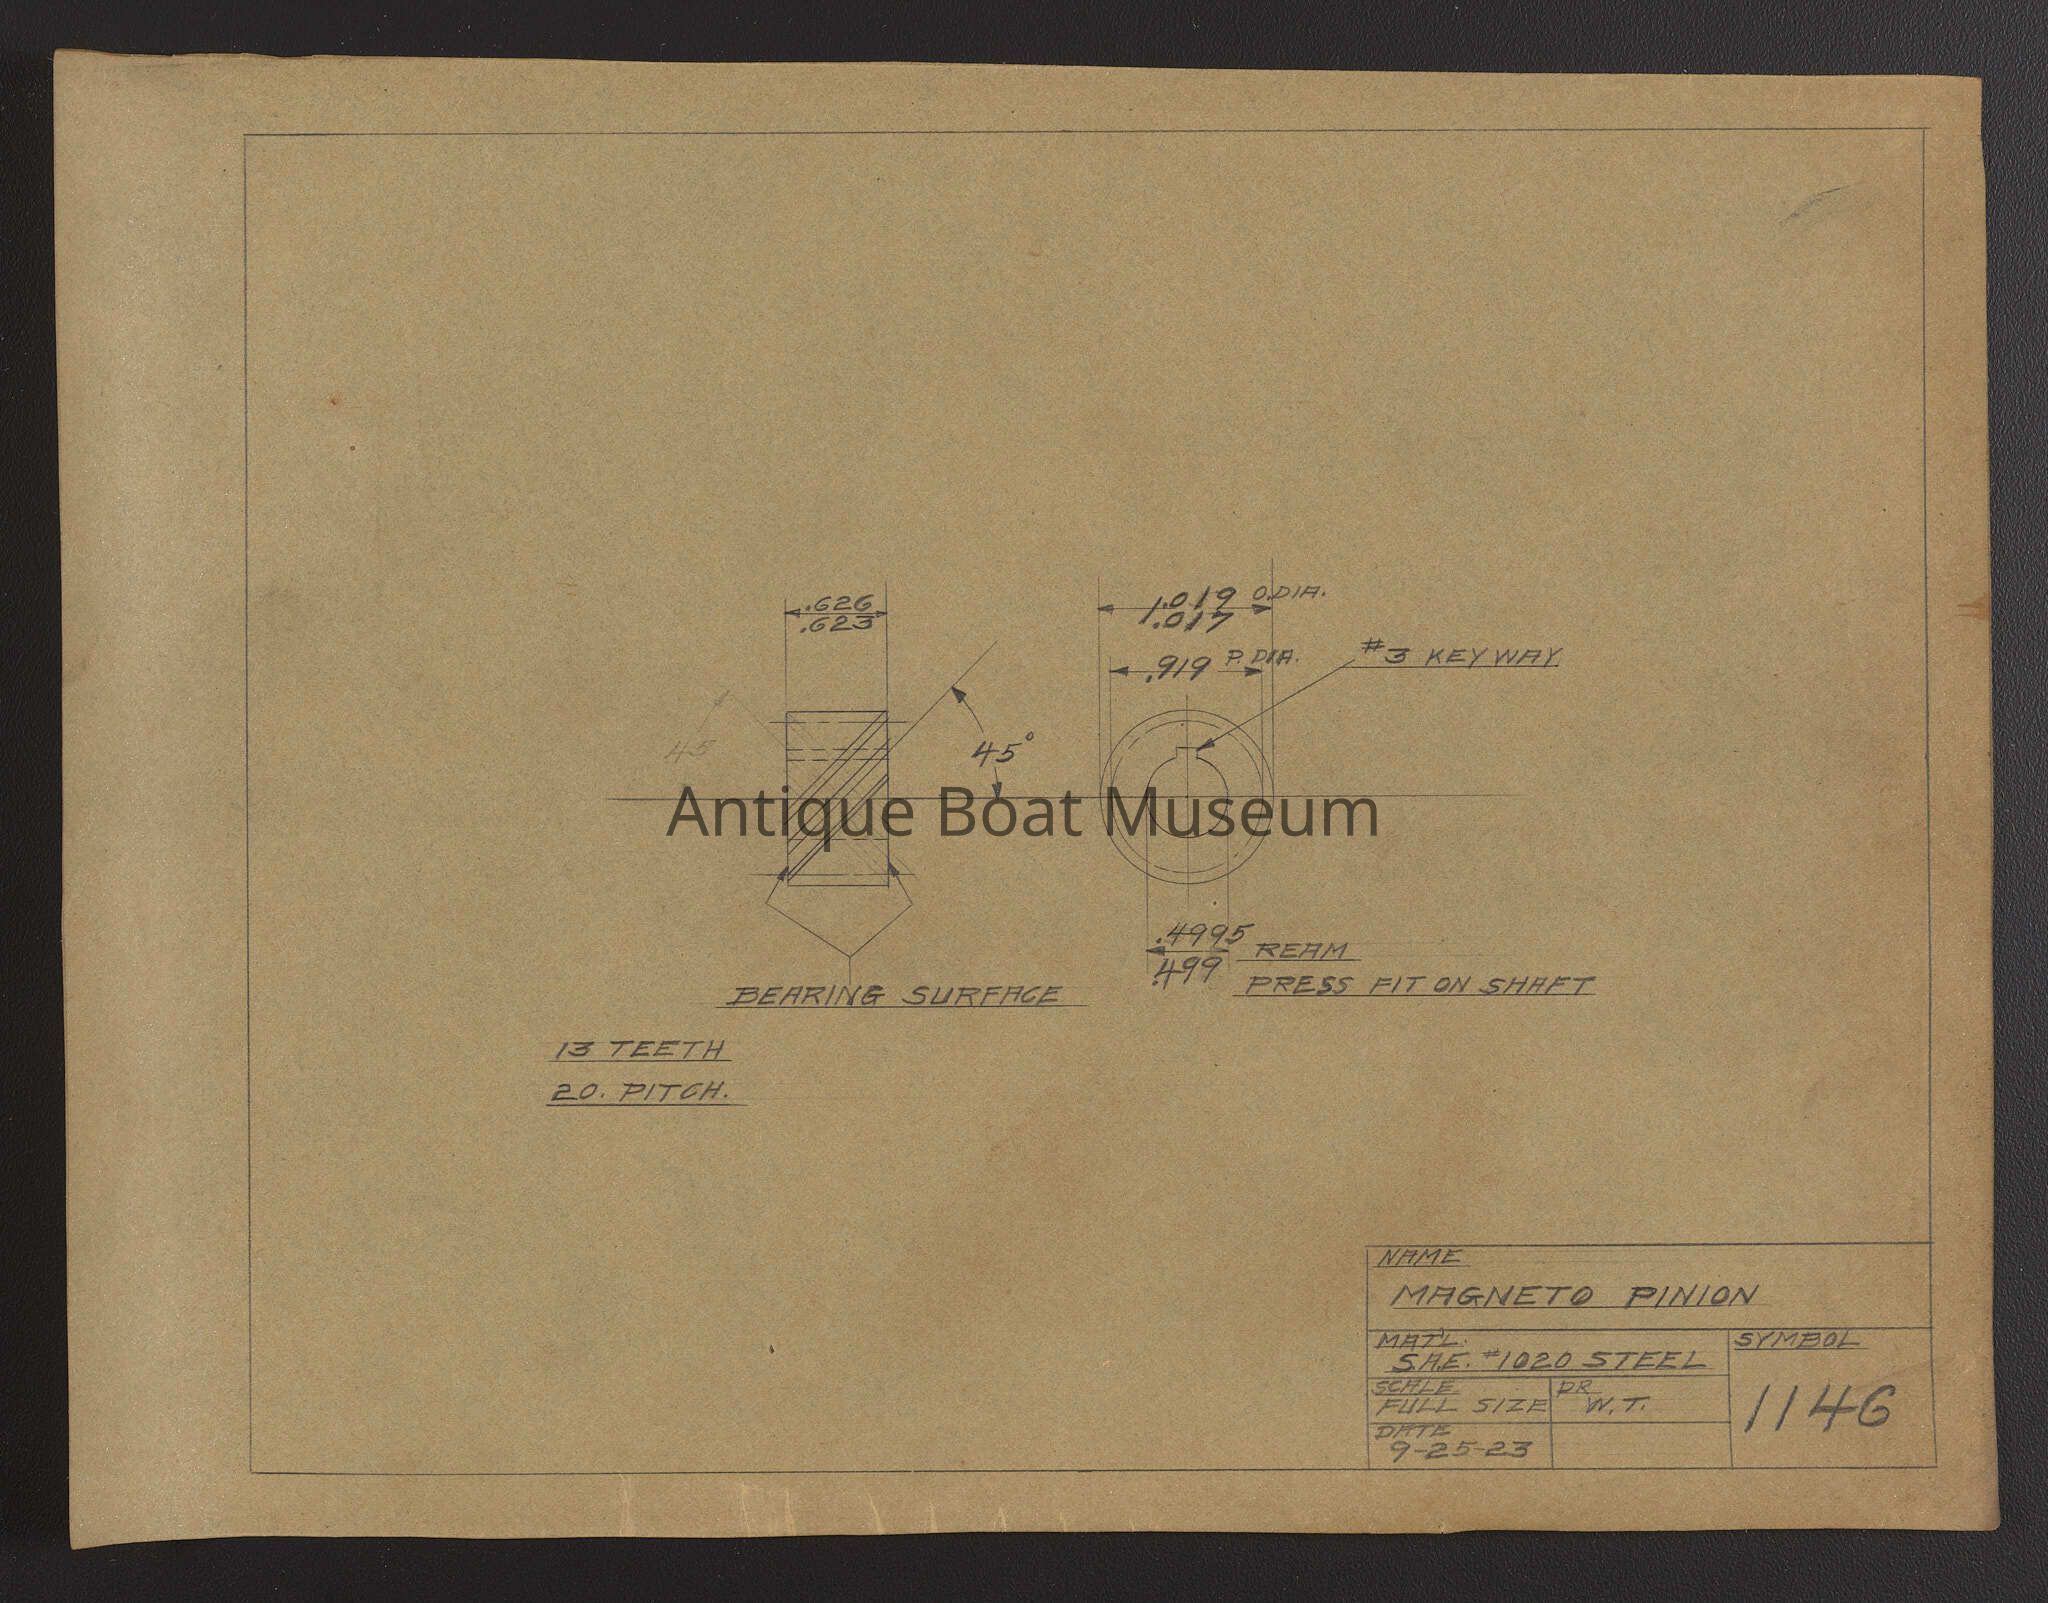 .626
.623
1.019 O.DIA.
1.017
.919 P. DIA.
#3 KEY WAY
45
45°
Antique Boat Museum
.4995
.499
REAM
PRESS FIT ON SHAFT
BEARING SURFACE
13 TEETH
20. PITCH.
NAME
MAGNETO PINION
MAT'L.
S.A.E. #1020 STEEL
SYMBOL
1146
SCALE
FULL SIZE
DR
W.T.
DATE
9-25-23